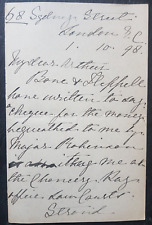 68 Sydney Street
London S.C
1. 10. 98.
My dear Arthur
Bone & Sheppell
have written to day
cheque for the money
bequeathed to me by
Major
me at
the Chancery Pay
office Law Courts
Strand